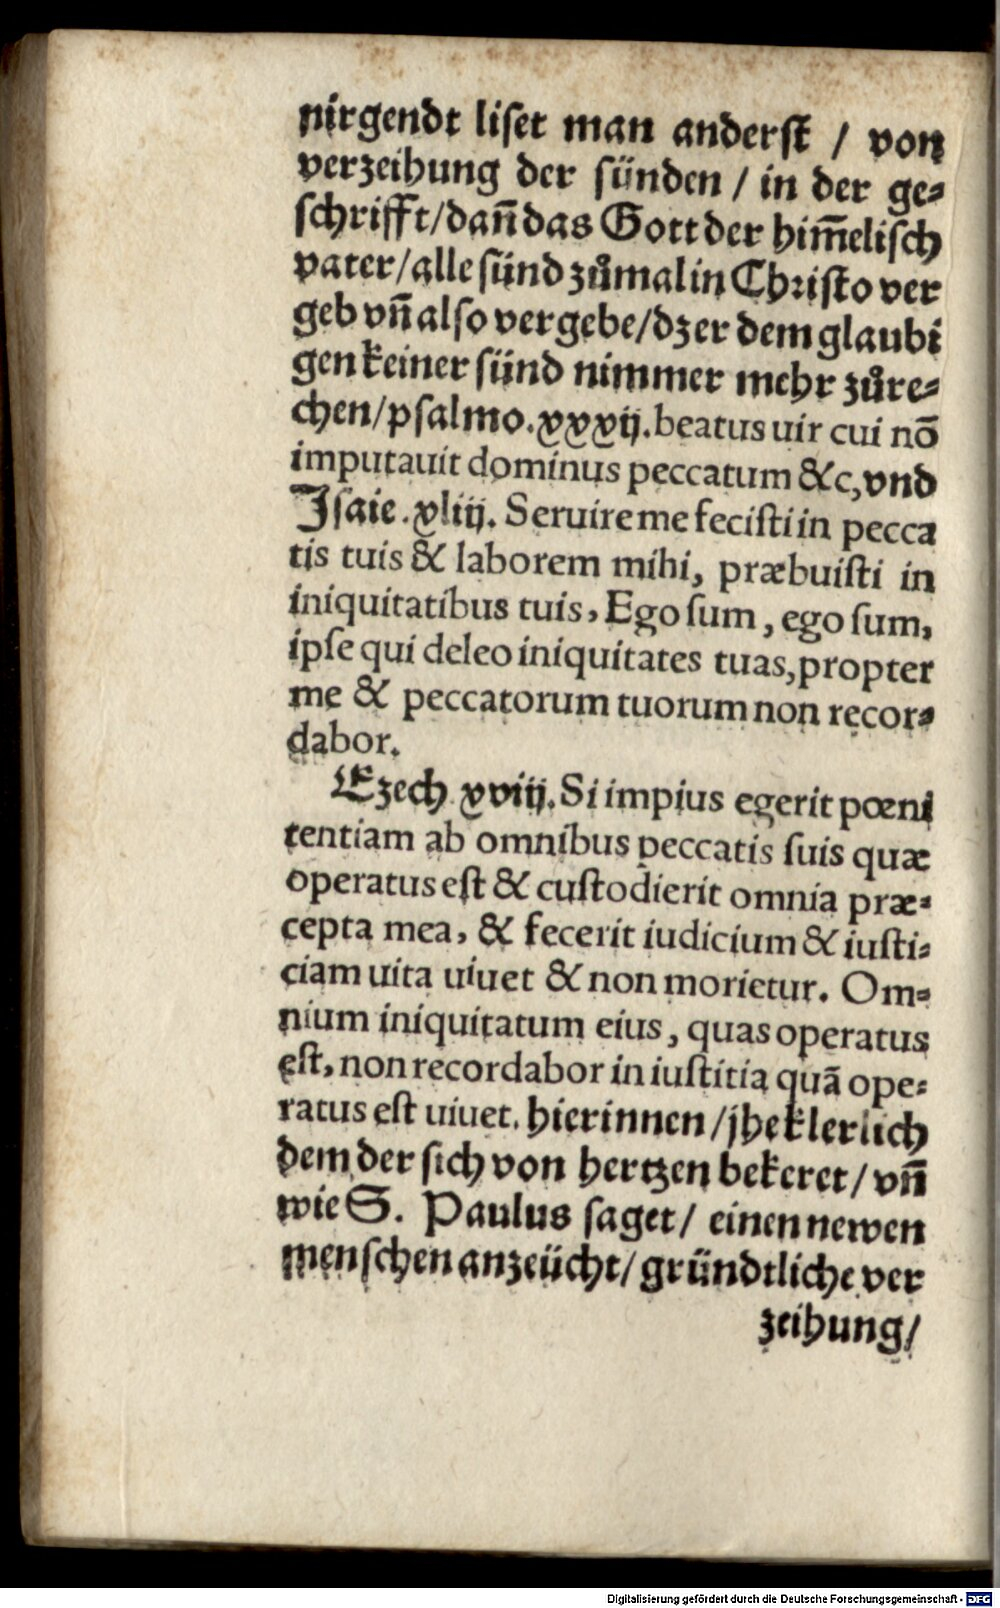 nirgendt liset man anderst / von
verzeihung der sünden / in der ge-
schrifft/dañ das Gott der him̃elisch
vater/alle sünd zůmal in Christo ver
geb vñ also vergebe/dz er dem glaubi
gen keiner sünd nimmer mehr zůre-
chen/psalmo.xxxij.beatus uir cui nõ
imputauit dominus peccatum &c,vnd
Jsaie.xliij. Seruire me fecisti in pecca
tis tuis & laborem mihi, præbuisti in
iniquitatibus tuis, Ego sum, ego sum,
ipse qui deleo iniquitates tuas,propter
me & peccatorum tuorum non recor-
dabor.
Ezech xviij.Si impius egerit pœni
tentiam ab omnibus peccatis suis quæ
operatus est & custodierit omnia præ-
cepta mea, & fecerit iudicium & iusti-
ciam uita uiuet & non morietur. Om-
nium iniquitatum eius, quas operatus
est, non recordabor in iustitia quã ope-
ratus est uiuet. hierinnen/jhe klerlich
dem der sich von hertzen bekeret/ vñ
wie S. Paulus saget/ einen newen
menschen anzeücht/ gründtliche ver
zeihung/
Digitalisierung gefördert durch die Deutsche Forschungsgemeinschaft - DFG